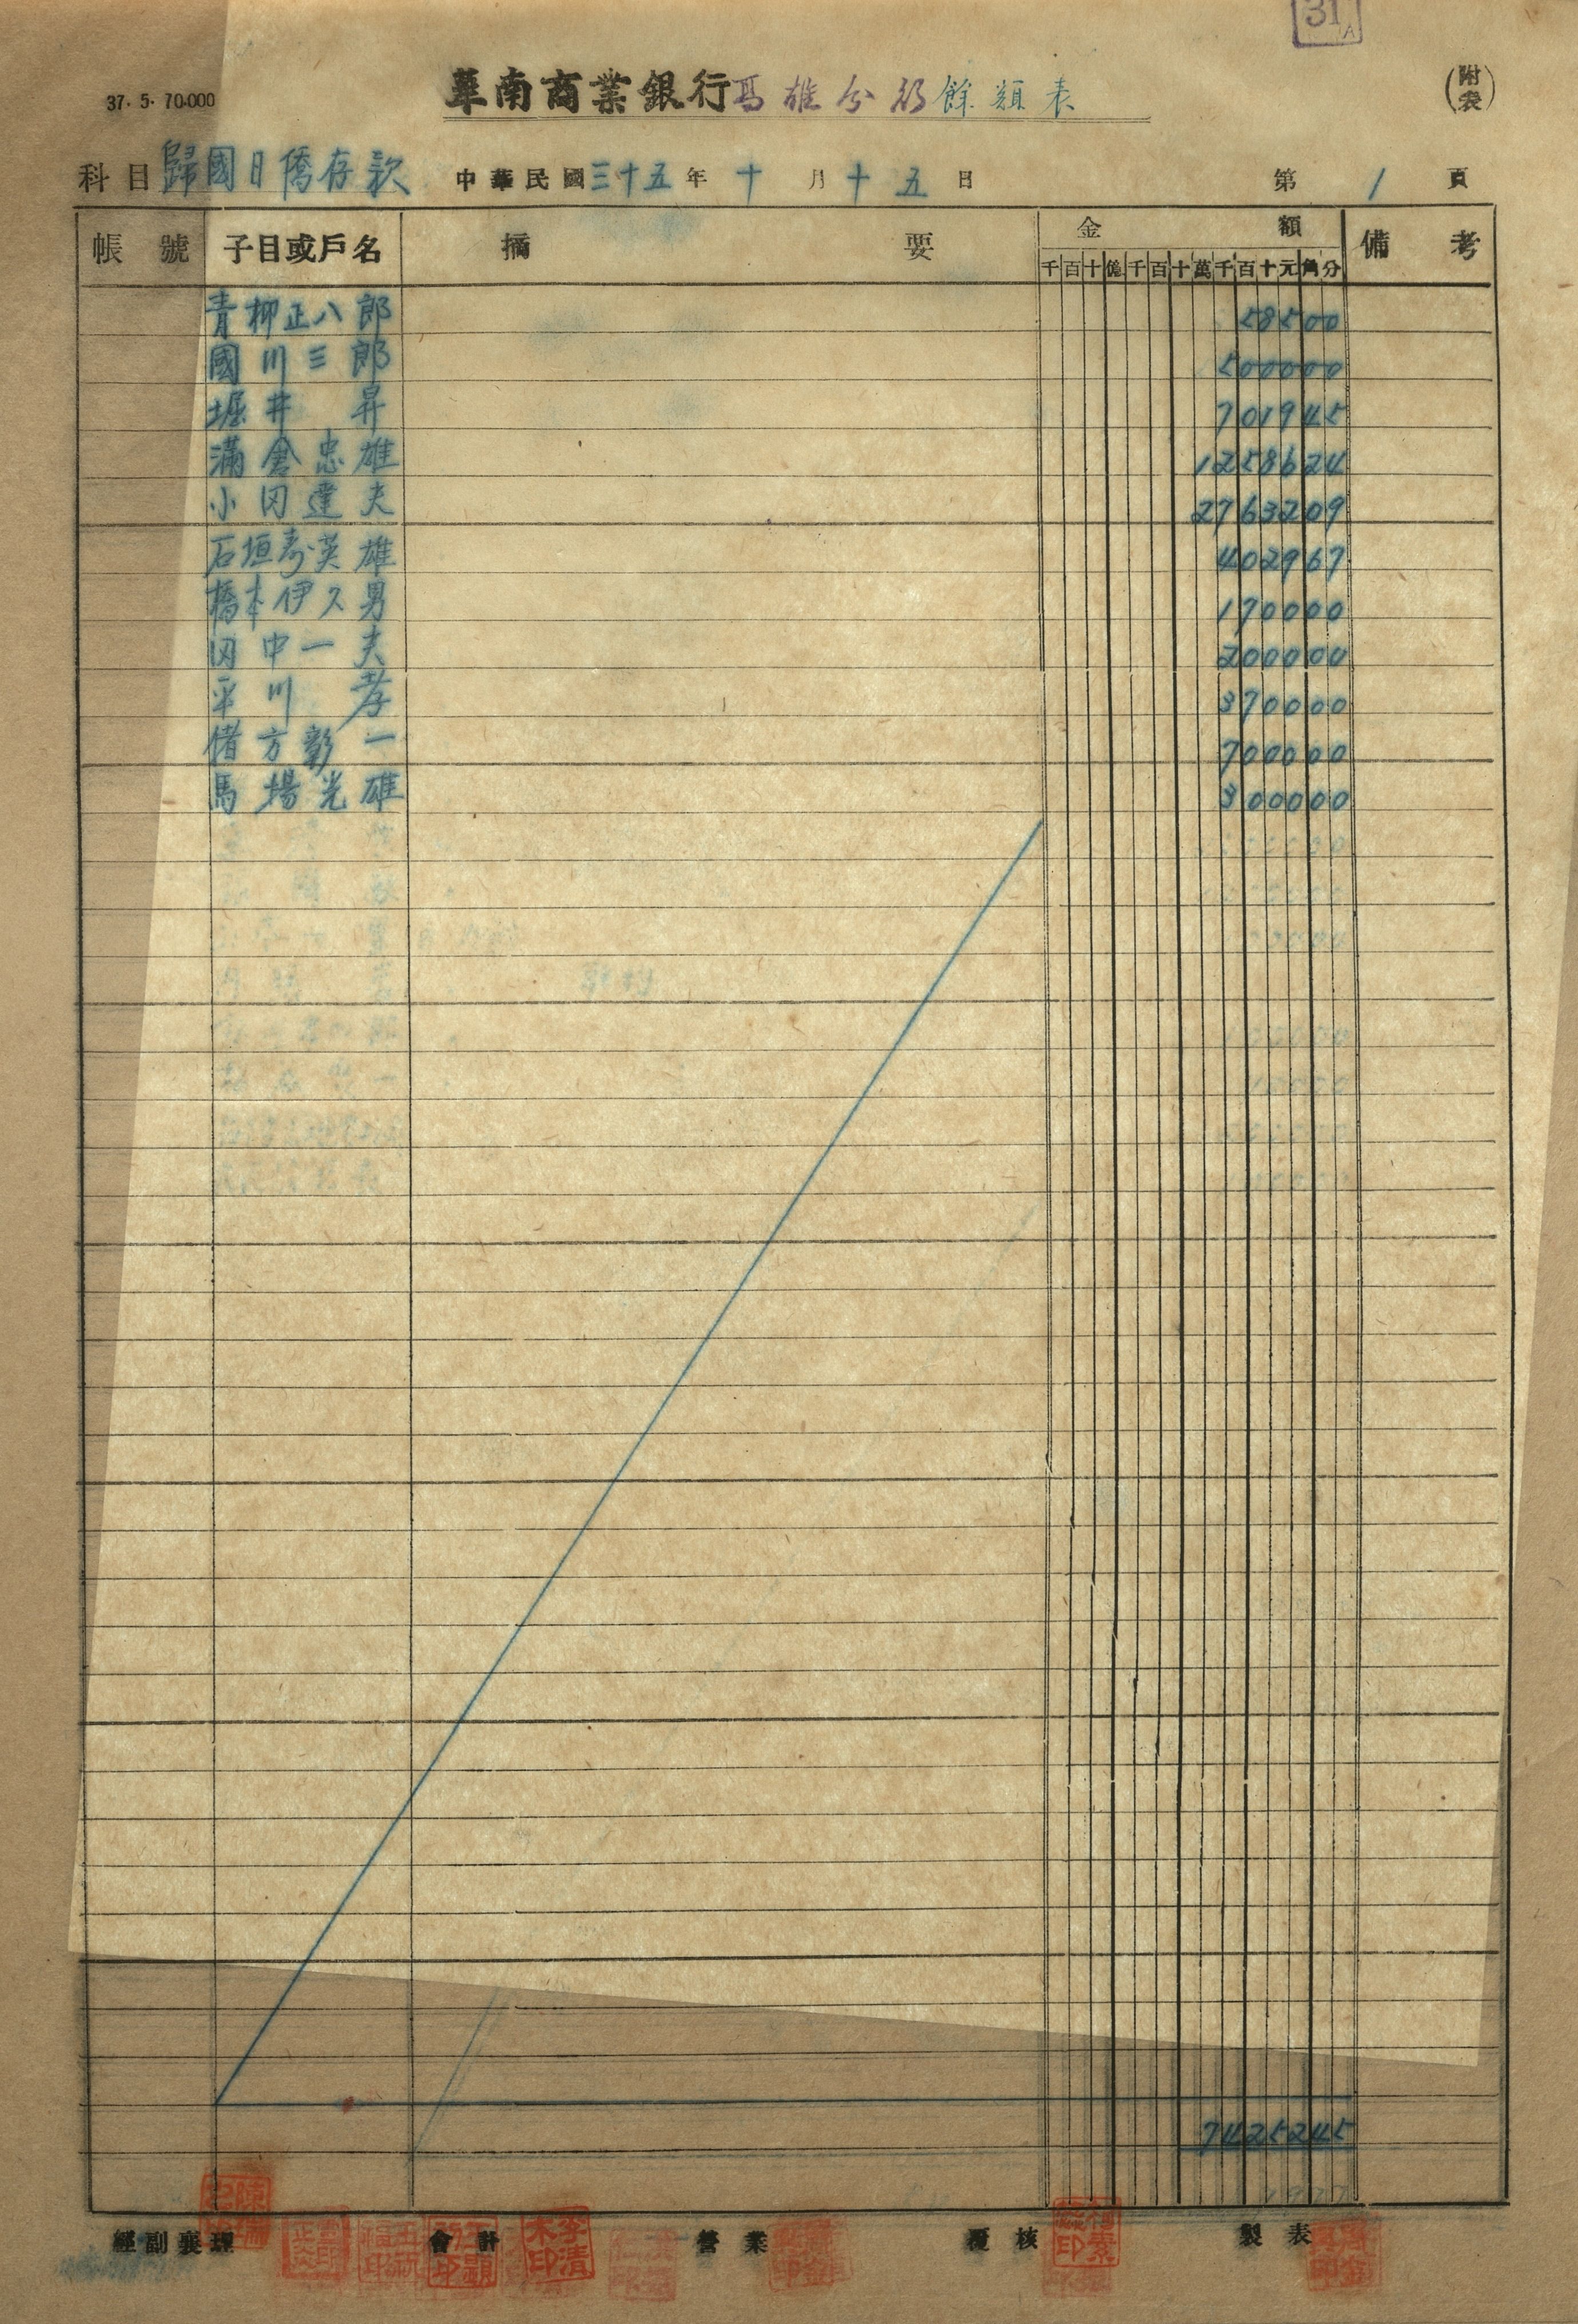 31 A
37. 5. 70.000
華南商業銀行高雄分行餘額表
(附表)
科目 歸國日僑存款 中華民國三十五年十月十五日 第1頁
帳號 子目或戶名 摘要 金額 備考
千百十億千百十萬千百十元角分
青柳正八郎 58500
國川三郎 500000
堀井昇 701945
滿倉忠雄 1258624
小冈達夫 2763209
石垣寿英雄 402967
橋本伊久男 170000
冈中一夫 200000
平川孝 370000
緒方彰一 700000
馬場光雄 300000
7425245
經副襄理 會計 營業 覆核 製表
李清木印